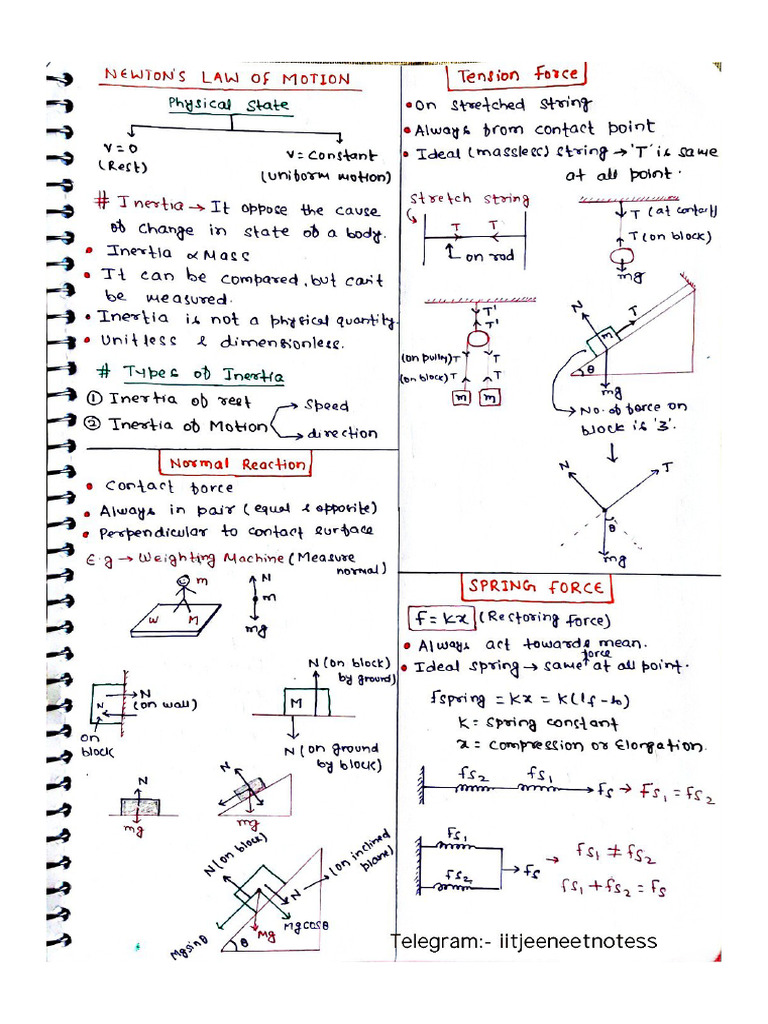 NEWTON'S LAW OF MOTION
Physical State
V=0
(Rest)
V=Constant
(Uniform motion)
# Inertia → It oppose the cause
of change in state of a body.
• Inertia ∝ Mass
• It can be compared, but can't
be measured.
• Inertia is not a physical quantity.
• Unitless & dimensionless.
# Types of Inertia
① Inertia of rest
② Inertia of Motion
→ Speed
→ direction
Normal Reaction
• Contact force
• Always in pair (equal & opposite)
• Perpendicular to contact surface
E.g → Weighting Machine (Measure
normal)
m
W M
N
m
mg
N
(on wall)
N
on
block
N (on block)
by ground)
M
N (on ground
by block)
N
mg
N
mg
N (on block)
N
(on inclined
plane)
Mgsinθ
θ
Mg
Mgcosθ
Tension Force
• On stretched string
• Always from contact point
• Ideal (massless) string → 'T' is same
at all point.
Stretch string
T T
on rod
T (at contact)
T (on block)
mg
T'
T'
(on pulley) T T
(on block) T T
m m
N
T
m
θ
mg
→ No. of force on
block is '3'.
N T
θ
mg
SPRING FORCE
f = kx (Restoring force)
• Always act towards mean.
• Ideal spring → same force at all point.
fspring = Kx = K(lf - lo)
K = spring constant
x = compression or Elongation.
fs2 fs1
fs → Fs1 = fs2
fs1
fs2
fs
→ fs1 ≠ fs2
fs1 + fs2 = fs
Telegram:- iitjeeneetnotess